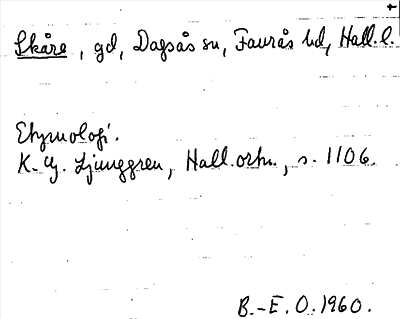 Skåre, gd, Dagsås sn, Faurås hd, Hall. l.
Etymologi.
K. G. Ljunggren, Hall. ortn., s. 1106.
B.-E. O. 1960.